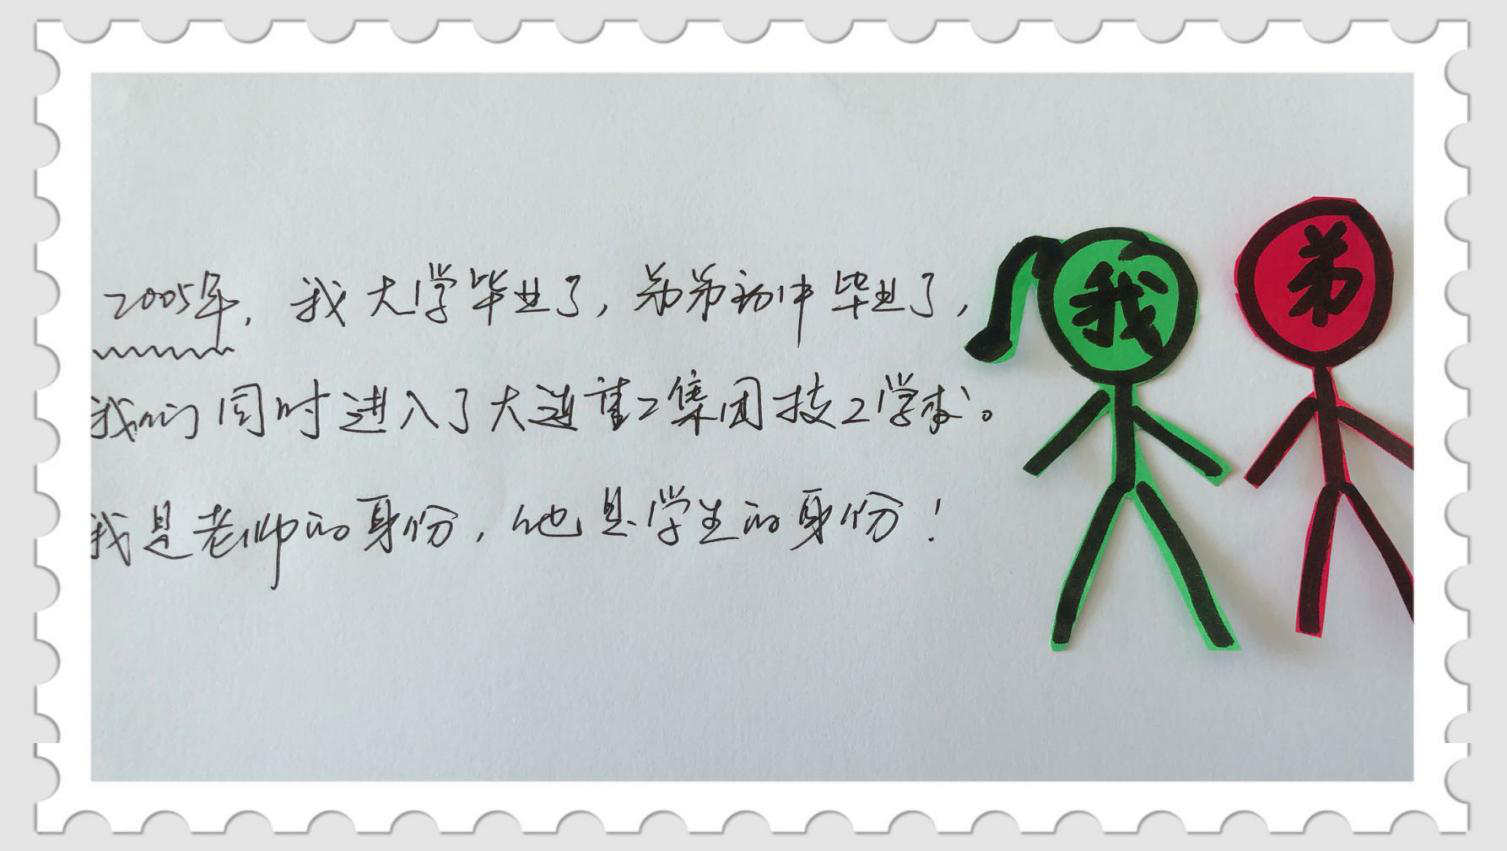 2005年，我大学毕业了，弟弟初中毕业了，
我们同时进入了大连重工集团技工学校。
我是老师的身份，他是学生的身份！
我
弟